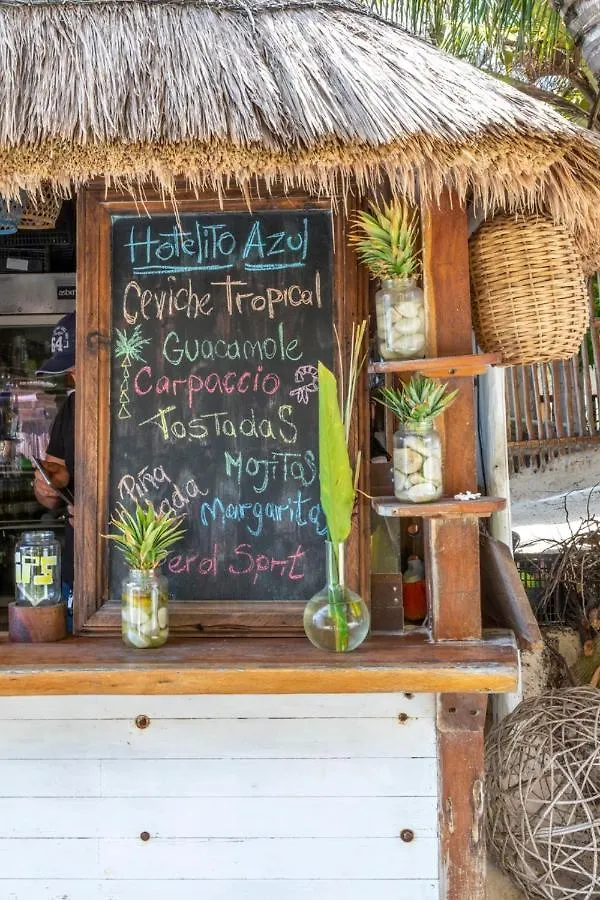 HoteliTo Azul
Ceviche Tropical
Guacamole
Carpaccio
Tostadas
Mojitos
Piña
Margarita
Sprit